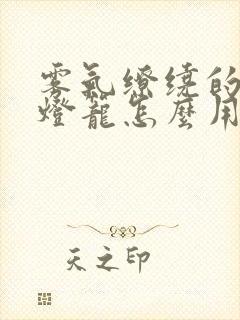 雾氣繚繞的
燈籠怎麼用
天之印